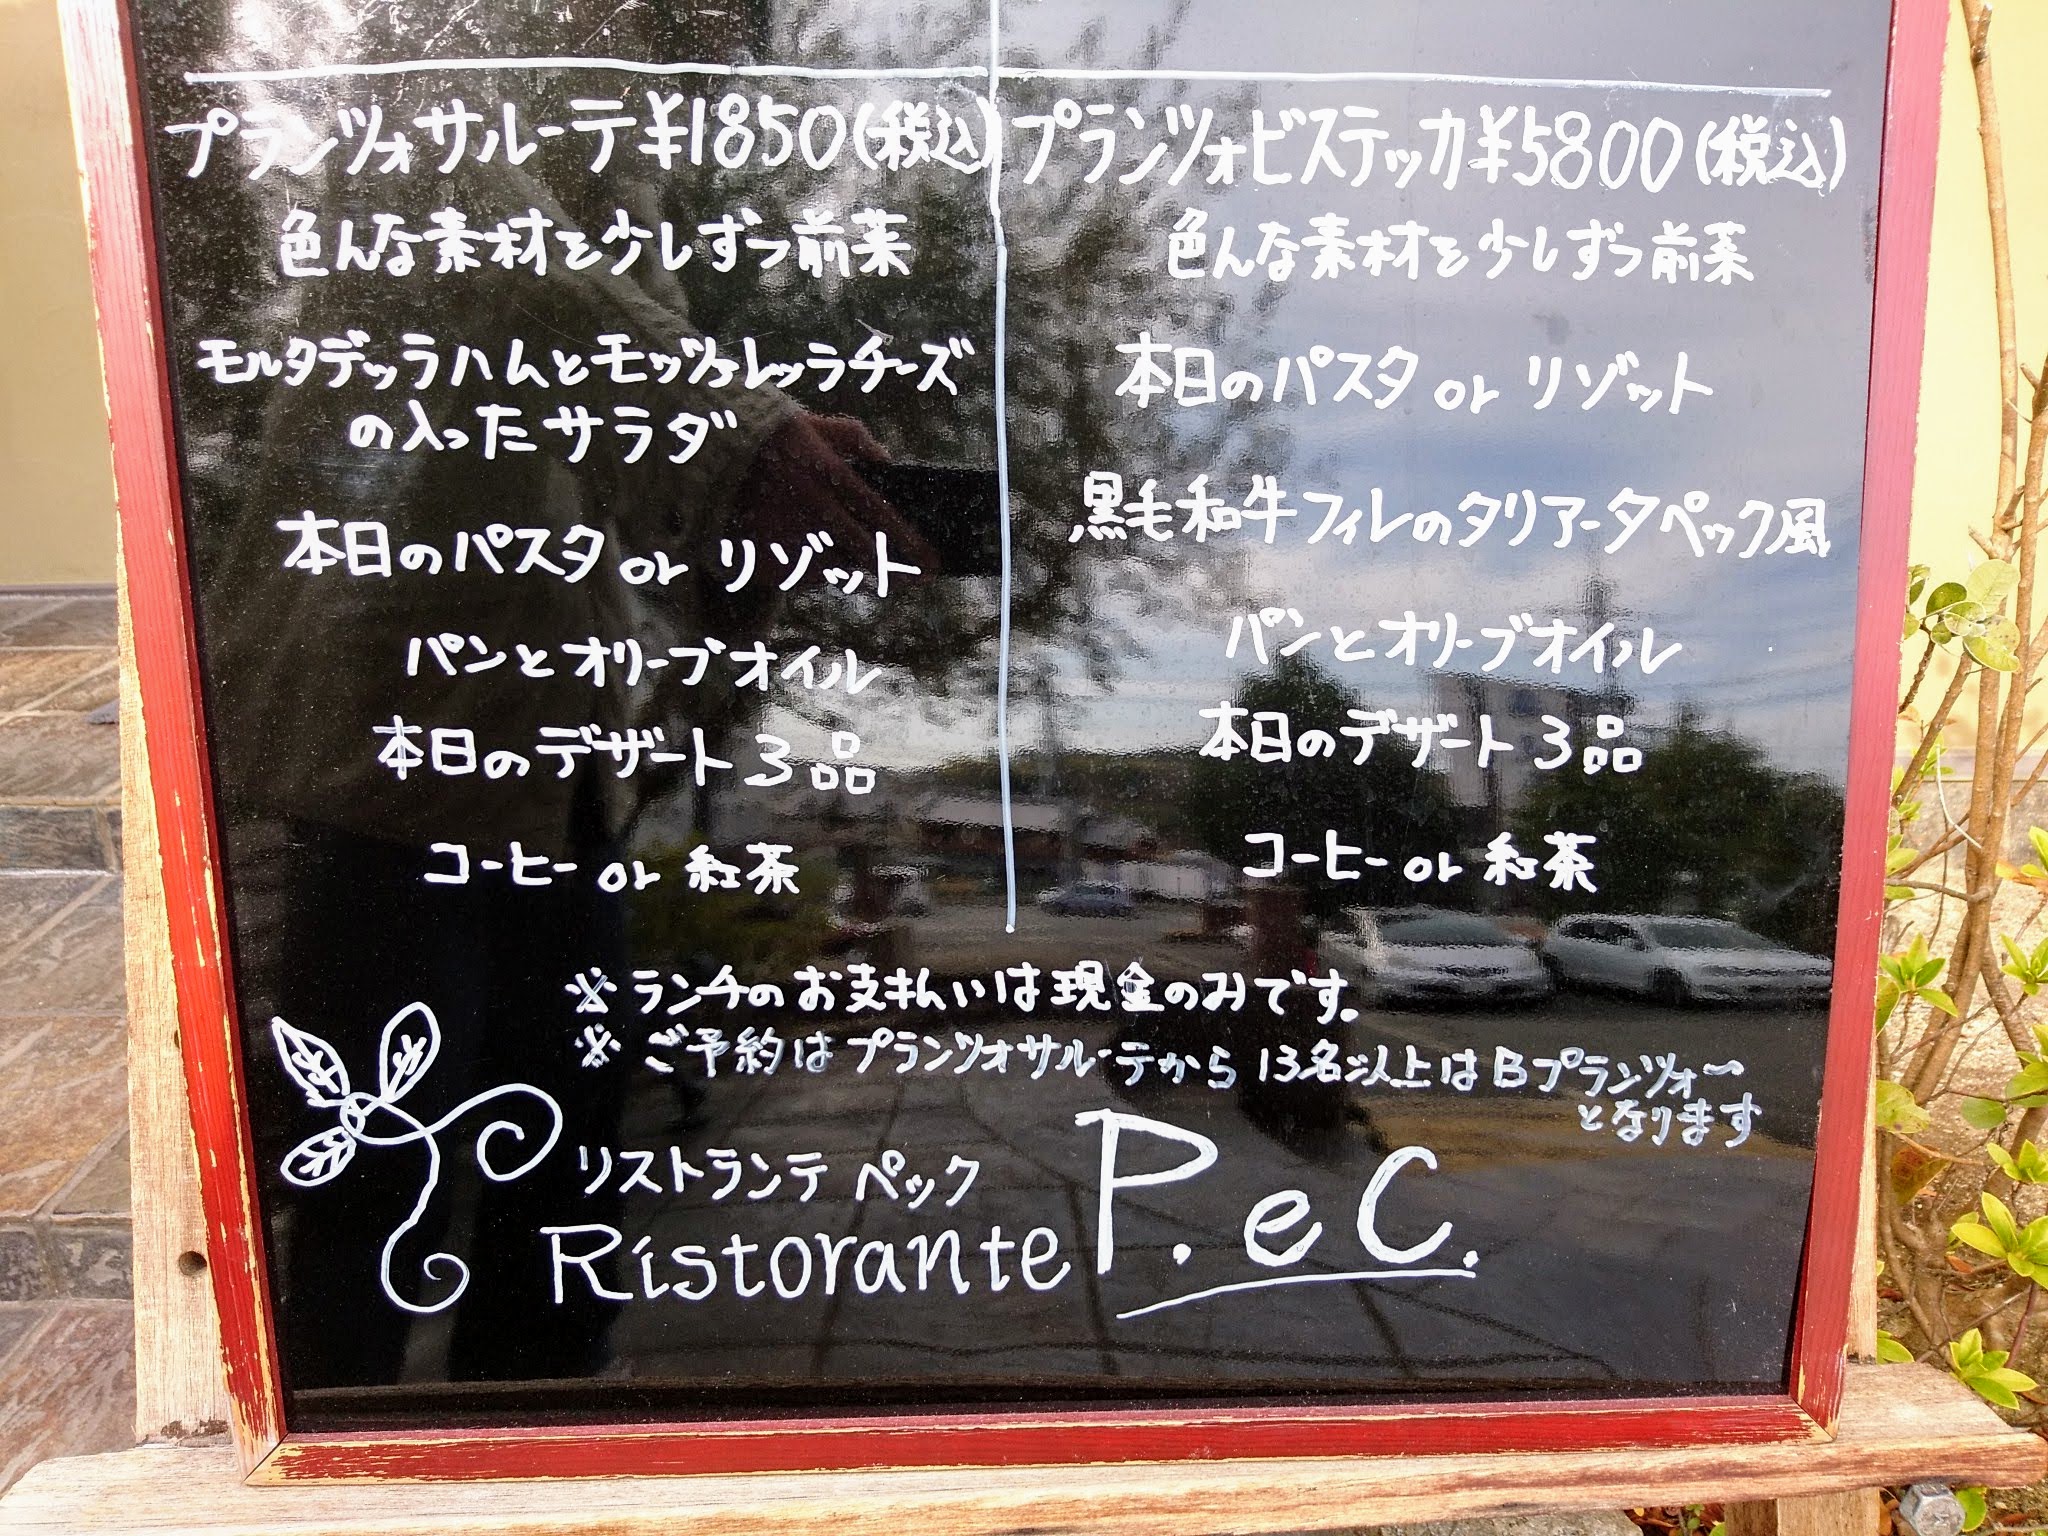 プランツォサルーテ¥1850(税込)
色んな素材を少しずつ前菜
モルタデッラハムとモッツァレッラチーズ
の入ったサラダ
本日のパスタ or リゾット
パンとオリーブオイル
本日のデザート 3品
コーヒー or 紅茶
プランツォビステッカ¥5800(税込)
色んな素材を少しずつ前菜
本日のパスタ or リゾット
黒毛和牛フィレのタリアータペック風
パンとオリーブオイル
本日のデザート 3品
コーヒー or 紅茶
※ランチのお支払いは現金のみです。
※ご予約はプランツォサルーテから 13名以上はBプランツォ〜
となります
リストランテ ペック
Ristorante P.e.C.